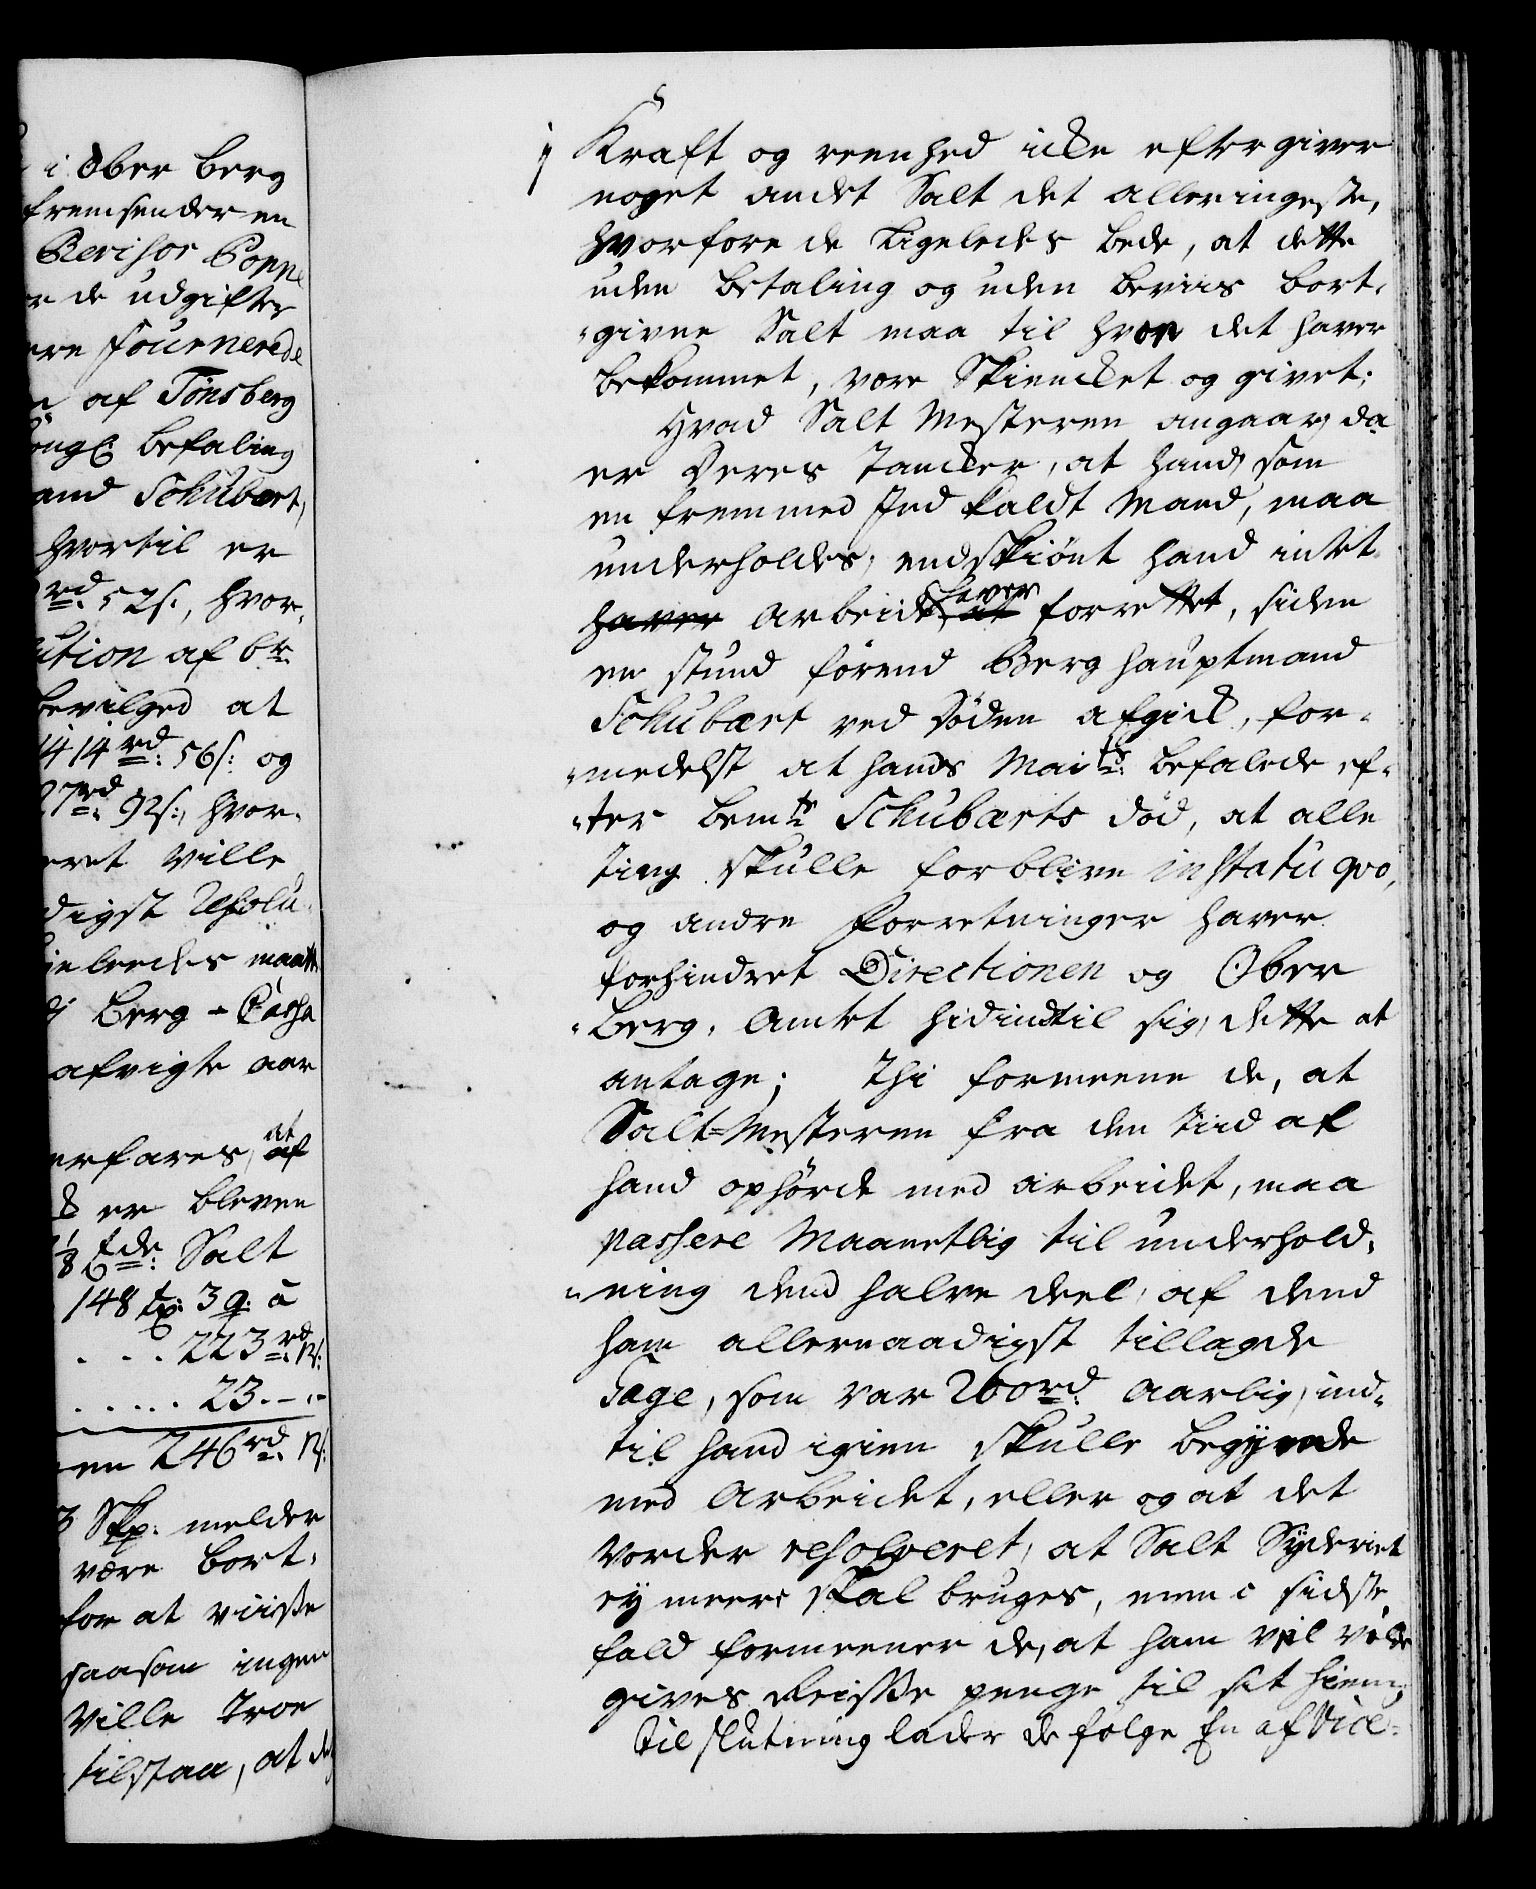 i Ober Berg
fremsender en
Revisor Poppe
de udgifter
fournerede
af Tønsberg
Kongl: befaling
mand Schubart,
hvortil er
rd: 52s:, hvor-
ution af br
bevilged at
1414 rd: 56s: og
27rd: 92s:, hvor-
eret ville
digst Resolu-
ledes maatte
Berg-Cassa
afvigte aar
erfares, at af
er bleven
1/8 tde: Salt
148 tr: 3 q: à
. . . 223 rd
. . . . . 23.-.-
en 246 rd:
3 Skp: melder
være bort-
for at viise
saasom ingen
Ville Troe
tilstaa, at de
Kraft og reenhed icke eftergiver
noget andet Salt det alleringeste,
hvorfore de Ligeledes bede, at dette
uden betaling og uden beviis bort-
givne Salt maa til hvem det haver
bekommet, være Skiencket og givet;
Hvad Salt Mesteren angaar, da
er Deres Tancker, at hand, som
en fremmed Ind kaldt Mand, maa
underholdes, endskiønt hand intet
haver arbeide, haver at forrettet, siden
en stund førend Berg hauptmand
Schubart ved Døden afgick, for-
medelst at hands Maits: befalede ef-
ter bemte Schubarts død, at alle
ting skulle forblive in statu qvo,
og andre forretninger haver
forhindret Directionen og Ober
Berg-Amtet hidindtil sig, dette at
antage; Thi formeene de, at
Salt-Mesteren fra den tiid af
hand ophørde med arbeidet, maa
passere Maanetlig til underhold-
ning dend halve deel, af dend
ham allernaadigst tillagde
Gage, som var 260rd: aarlig, ind-
til hand igien skulle begynde
med Arbeidet, eller og at det
vorder resolveret, at Salt Syderiet
ey meere skal bruges, men i sidste
fald formeener de, at ham vil vilde
gives Reisse penge til sit hiem,
Til slutning lader de følge En af Vice-